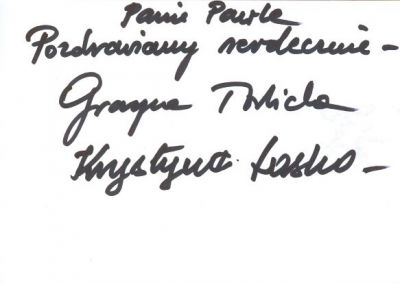 Panie Pawle
Pozdrawiamy serdecznie –
Grażyna
Krystyna Łasko –